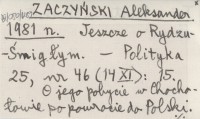 ZACZYŃSKI Aleksander
1981 r. Jeszcze o Rydzu-
-Śmigłym. — Polityka
25, nr 46 (14 XI): 15.
O jego pobycie w Chocho-
łowie po powrocie do Polski.